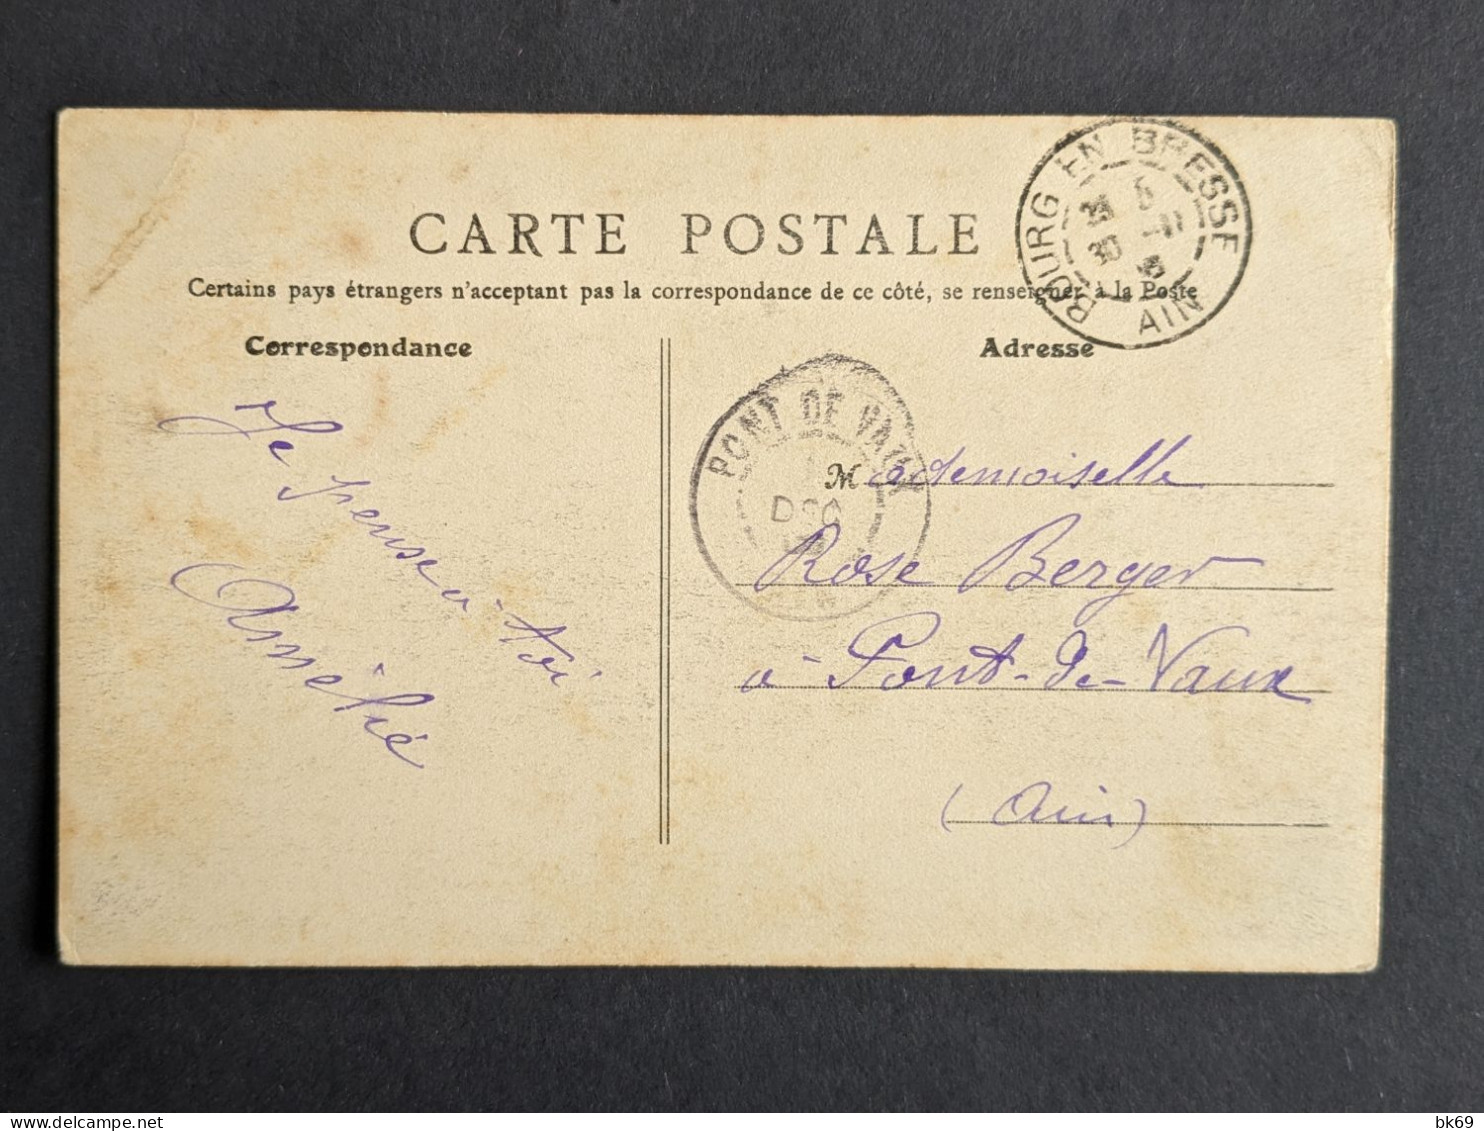 CARTE POSTALE
Certains pays étrangers n'acceptant pas la correspondance de ce côté, se renseigner à la Poste
Correspondance
Adresse
BOURG EN BRESSE
30 -11
AIN
PONT DE VAUX
Je pense à toi
Amélie
Mademoiselle
Rose Berger
à Pont-de-Vaux
(Ain)
bk69